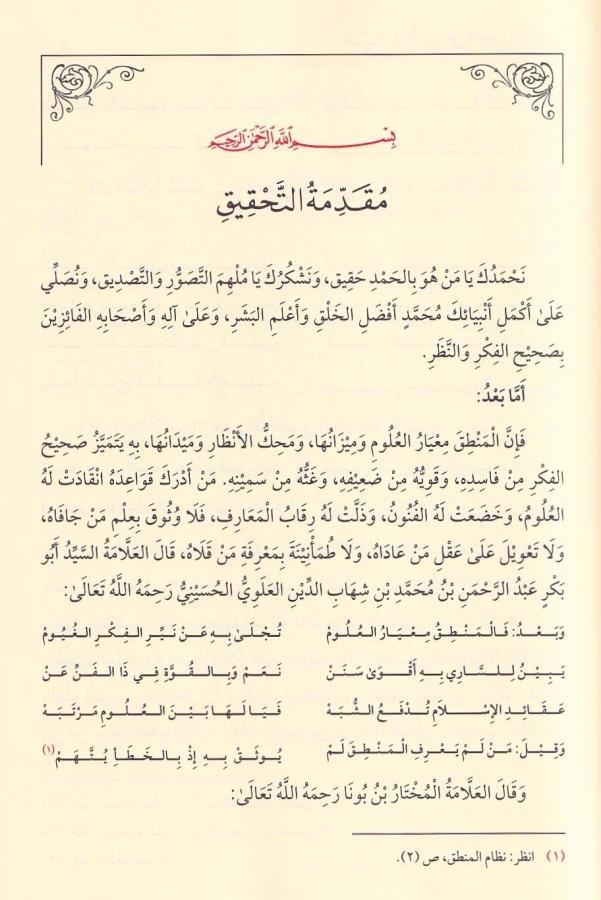 بِسْمِ اللَّهِ الرَّحْمَٰنِ الرَّحِيمِ
مُقَدِّمَةُ التَّحْقِيقِ
نَحْمَدُكَ يَا مَنْ هُوَ بِالحَمْدِ حَقِيق، وَنَشْكُرُكَ يَا مُلْهِمَ التَّصَوُّرِ وَالتَّصْدِيق، وَنُصَلِّي
عَلَىٰ أَكْمَلِ أَنْبِيَائِكَ مُحَمَّدٍ أَفْضَلِ الخَلْقِ وَأَعْلَمِ البَشَرِ، وَعَلَىٰ آلِهِ وَأَصْحَابِهِ الفَائِزِيْنَ
بِصَحِيْحِ الفِكْرِ وَالنَّظَرِ.
أَمَّا بَعْدُ:
فَإِنَّ الْمَنْطِقَ مِعْيَارُ العُلُومِ وَمِيْزَانُهَا، وَمَحِكُّ الأَنْظَارِ وَمَيْدَانُهَا، بِهِ يَتَمَيَّزُ صَحِيْحُ
الفِكْرِ مِنْ فَاسِدِهِ، وَقَوِيُّهُ مِنْ ضَعِيْفِهِ، وَغَثُّهُ مِنْ سَمِيْنِهِ. مَنْ أَدْرَكَ قَوَاعِدَهُ انْقَادَتْ لَهُ
العُلُومُ، وَخَضَعَتْ لَهُ الفُنُونُ، وَذَلَّتْ لَهُ رِقَابُ الْمَعَارِفِ، فَلَا وُثُوقَ بِعِلْمِ مَنْ جَافَاهُ،
وَلَا تَعْوِيْلَ عَلَىٰ عَقْلِ مَنْ عَادَاهُ، وَلَا طُمَأْنِيْنَةَ بِمَعْرِفَةِ مَنْ قَلَاهُ، قَالَ العَلَّامَةُ السَّيِّدُ أَبُو
بَكْرٍ عَبْدُ الرَّحْمَنِ بْنُ مُحَمَّدِ بْنِ شِهَابِ الدِّيْنِ العَلَوِيُّ الحُسَيْنِيُّ رَحِمَهُ اللَّهُ تَعَالَىٰ:
وَبَعْدُ: فَالْمَنْطِقُ مِعْيَارُ العُلُومْ تُجْلَىٰ بِهِ عَنْ نَيِّرِ الفِكْرِ الغُيُومْ
يَبِيْنُ لِلسَّارِي بِهِ أَقْوَىٰ سَنَنْ نَعَمْ وَبِالقُوَّةِ فِي ذَا الفَنِّ عَنْ
عَقَائِدِ الإِسْلَامِ تُدْفَعُ الشُّبَهْ فَيَا لَهَا بَيْنَ العُلُومِ مَرْتَبَهْ
وَقِيْلَ: مَنْ لَمْ يَعْرِفِ الْمَنْطِقَ لَمْ يُوثَقْ بِهِ إِذْ بِالخَطَأِ يُتَّهَمْ(١)
وَقَالَ العَلَّامَةُ الْمُخْتَارُ بْنُ بُونَا رَحِمَهُ اللَّهُ تَعَالَىٰ:
(١) انظر: نظام المنطق، ص (٢).